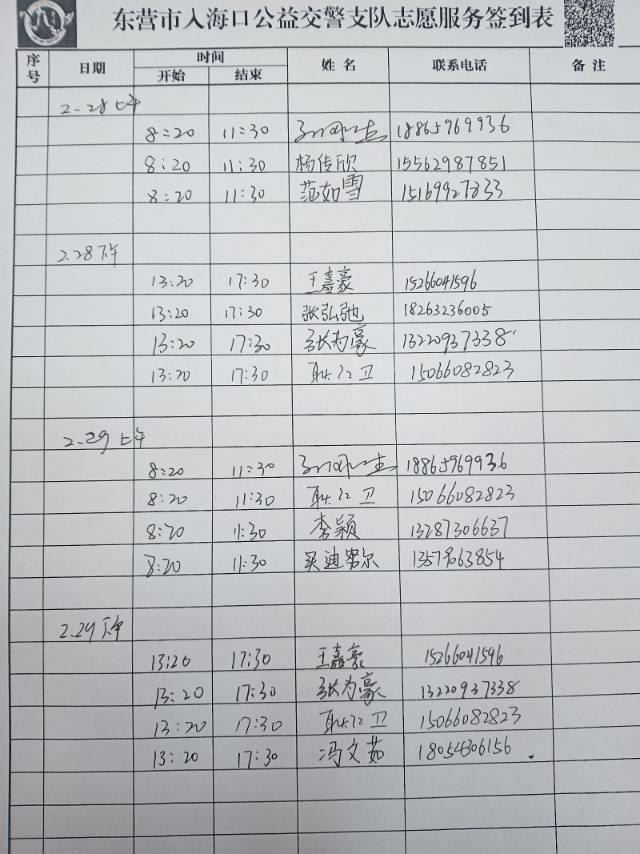 东营市入海口公益交警支队志愿服务签到表
序号 日期 时间 姓名 联系电话 备注
开始 结束
2.28上午
8:20 11:30 18865969936
8:20 11:30 杨传欣 15562987851
8:20 11:30 范如雪 15169927833
2.28下午
13:20 17:30 王嘉豪 15266041596
13:20 17:30 张弘弛 18263236005
13:20 17:30 张为豪 13220937338
13:20 17:30 耿红卫 15066082823
2.29上午
8:20 11:30 18865969936
8:20 11:30 耿红卫 15066082823
8:20 11:30 李颖 13287306637
8:20 11:30 买迪努尔 13579063854
2.29下午
13:20 17:30 王嘉豪 15266041596
13:20 17:30 张为豪 13220937338
13:20 17:30 耿红卫 15066082823
13:20 17:30 冯文茹 18054306156